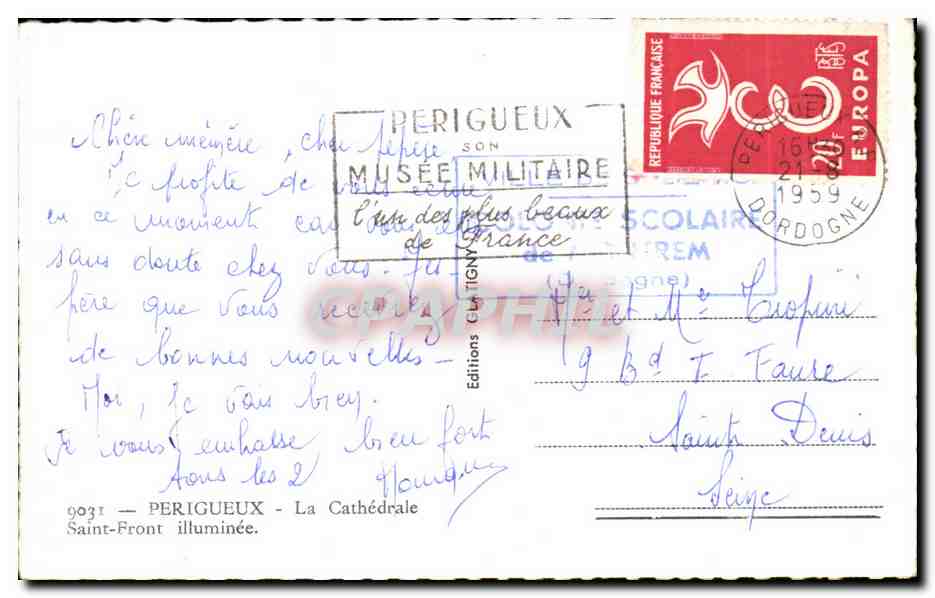 REPUBLIQUE FRANÇAISE
EUROPA
20F
PERIGUEUX
16H
21-8
1959
DORDOGNE
PERIGUEUX
SON
MUSÉE MILITAIRE
l'un des plus beaux
de France
SCOLAIRE
de
Chère mémère, cher pépère
Je profite de vous
en ce moment car vous
sans doute chez vous. J'es-
père que vous recevrez
de bonnes nouvelles -
Moi, je vais bien.
Je vous embrasse bien fort
tous les 2
Mr et Me
9 Bd F Faure
Saint Denis
Seine
Editions GLATIGNY
CPAPHIL
9031 — PERIGUEUX - La Cathédrale
Saint-Front illuminée.